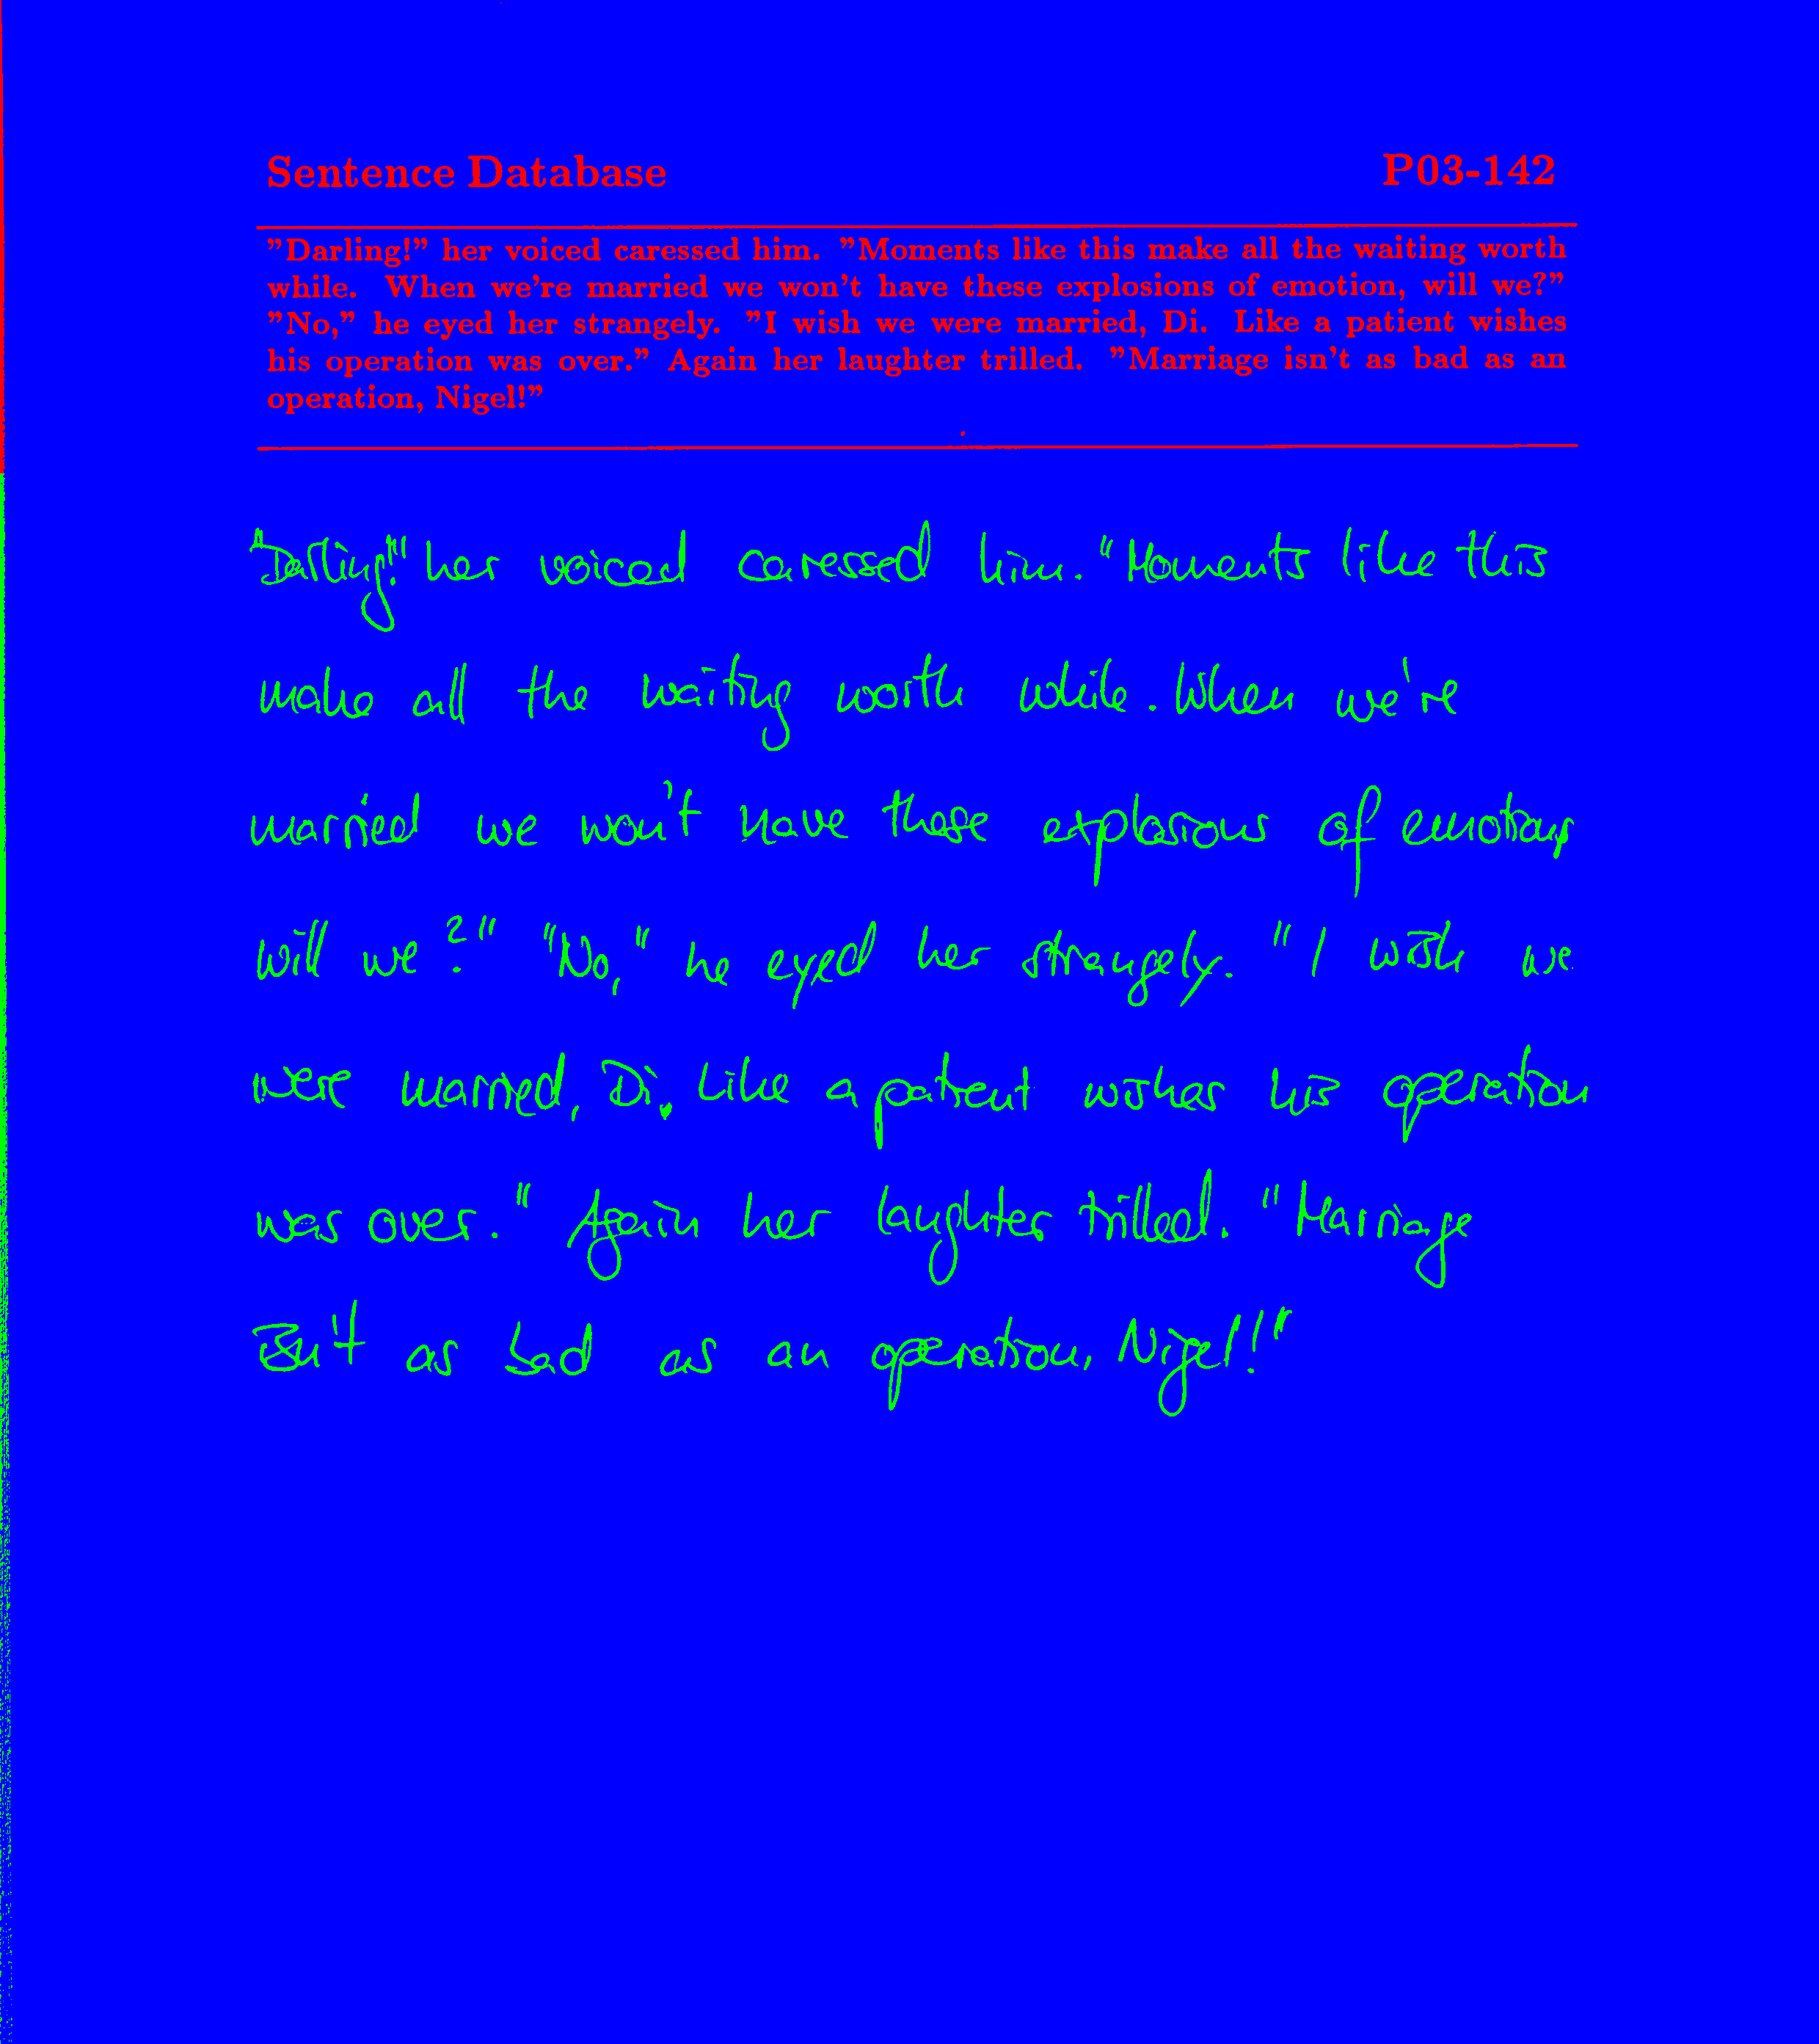 Sentence Database P03-142
"Darling!" her voiced caressed him. "Moments like this make all the waiting worth
while. When we're married we won't have these explosions of emotion, will we?"
"No," he eyed her strangely. "I wish we were married, Di. Like a patient wishes
his operation was over." Again her laughter trilled. "Marriage isn't as bad as an
operation, Nigel!"
"Darling!" her voiced caressed him. "Moments like this
make all the waiting worth while. When we're
married we won't have these explosions of emotion,
will we?" "No," he eyed her strangely. "I wish we
were married, Di. Like a patient wishes his operation
was over." Again her laughter trilled. "Marriage
isn't as bad as an operation, Nigel!"